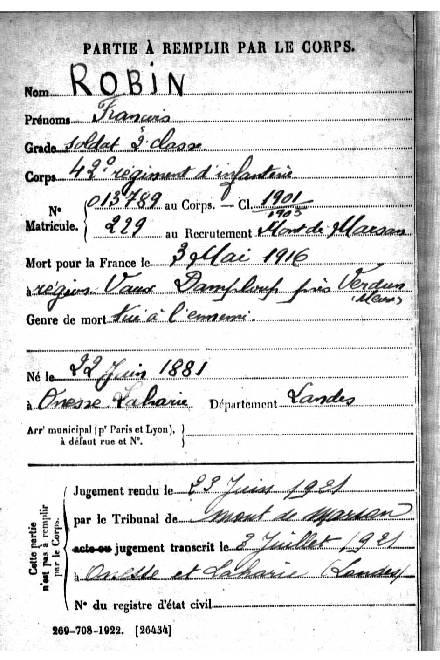 PARTIE À REMPLIR PAR LE CORPS.
Nom ROBIN
Prénoms François
Grade soldat 2e classe
Corps 42e régiment d'infanterie
N° Matricule. { 013789 au Corps. — Cl. 1901 1903
229 au Recrutement Mont de Marsan
Mort pour la France le 3 Mai 1916
à région Vaux Damploup près Verdun (Meuse)
Genre de mort Tué à l'ennemi.
Né le 22 Juin 1881
à Onesse Laharie Département Landes
Arrt municipal (pr Paris et Lyon), à défaut rue et N°.
Cette partie n'est pas à remplir par le Corps.
Jugement rendu le 23 Juin 1921
par le Tribunal de Mont de Marsan
acte ou jugement transcrit le 3 Juillet 1921
à Onesse et Laharie (Landes)
N° du registre d'état civil
269-708-1922. [26434]